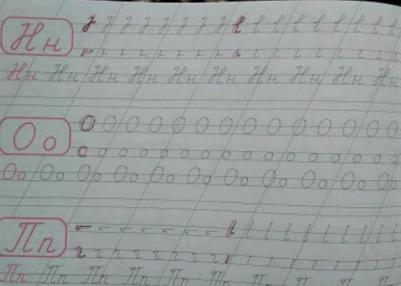 Нн
Нн Нн Нн Нн Нн Нн Нн Нн Нн Нн
Оо
О О О О О О О О О О О О О О
о о о о о о о о о о о о о о о о о
Оо Оо Оо Оо Оо Оо Оо Оо Оо Оо Оо
Пп
Пп Пп Пп Пп Пп Пп Пп Пп Пп Пп